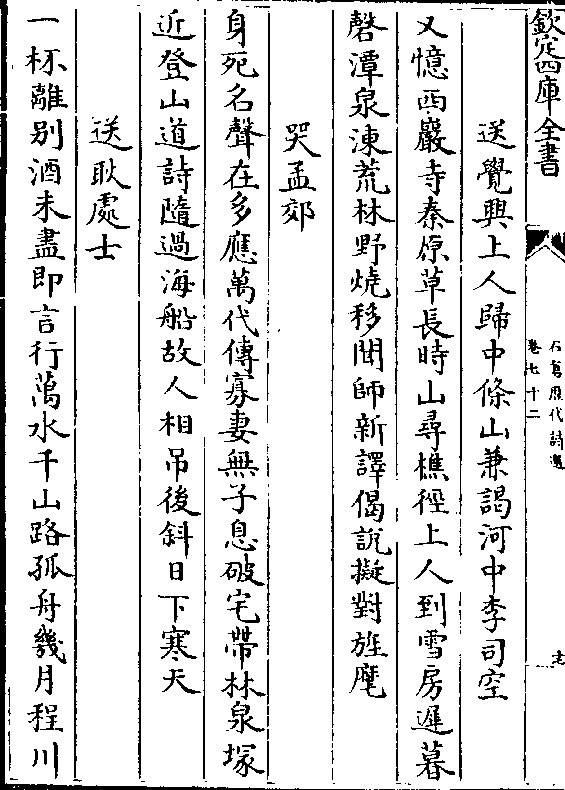 欽定四庫全書
石倉歷代詩選
卷七十二
送覺興上人歸中條山兼謁河中李司空
又憶西巖寺秦原草長時山尋樵徑上人到雪房遲暮
磬潭泉凍荒林野燒移聞師新譯偈說擬對旌麾
哭孟郊
身死名聲在多應萬代傳寡妻無子息破宅帶林泉塚
近登山道詩隨過海船故人相吊後斜日下寒天
送耿處士
一杯離別酒未盡即言行萬水千山路孤舟幾月程川